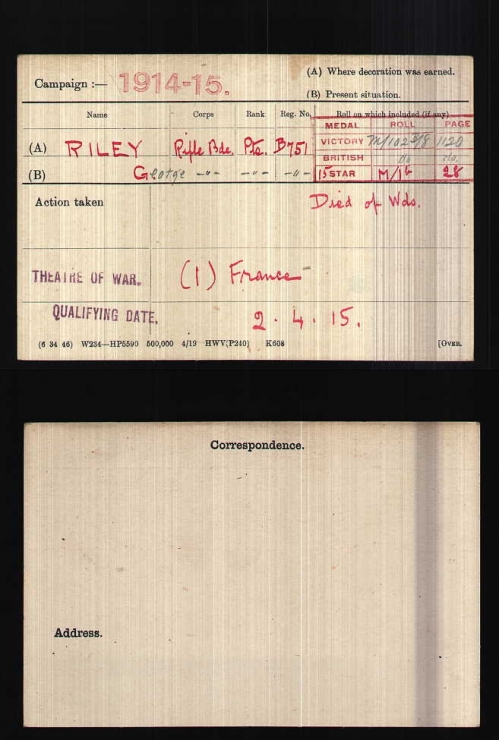 Campaign :— 1914-15.
(A) Where decoration was earned.
(B) Present situation.
Name Corps Rank Reg. No. Roll on which included (if any)
MEDAL ROLL PAGE
(A) RILEY Rifle Bde. Pte. B751 VICTORY
(B) George -"- -"- -"- BRITISH do do.
15 STAR M/16 28
Action taken Died of Wds.
THEATRE OF WAR. (1) France
QUALIFYING DATE. 2.4.15.
(6 34 46) W234—HP5590 500,000 4/19 HWV(P240) K608 [OVER.
Correspondence.
Address.